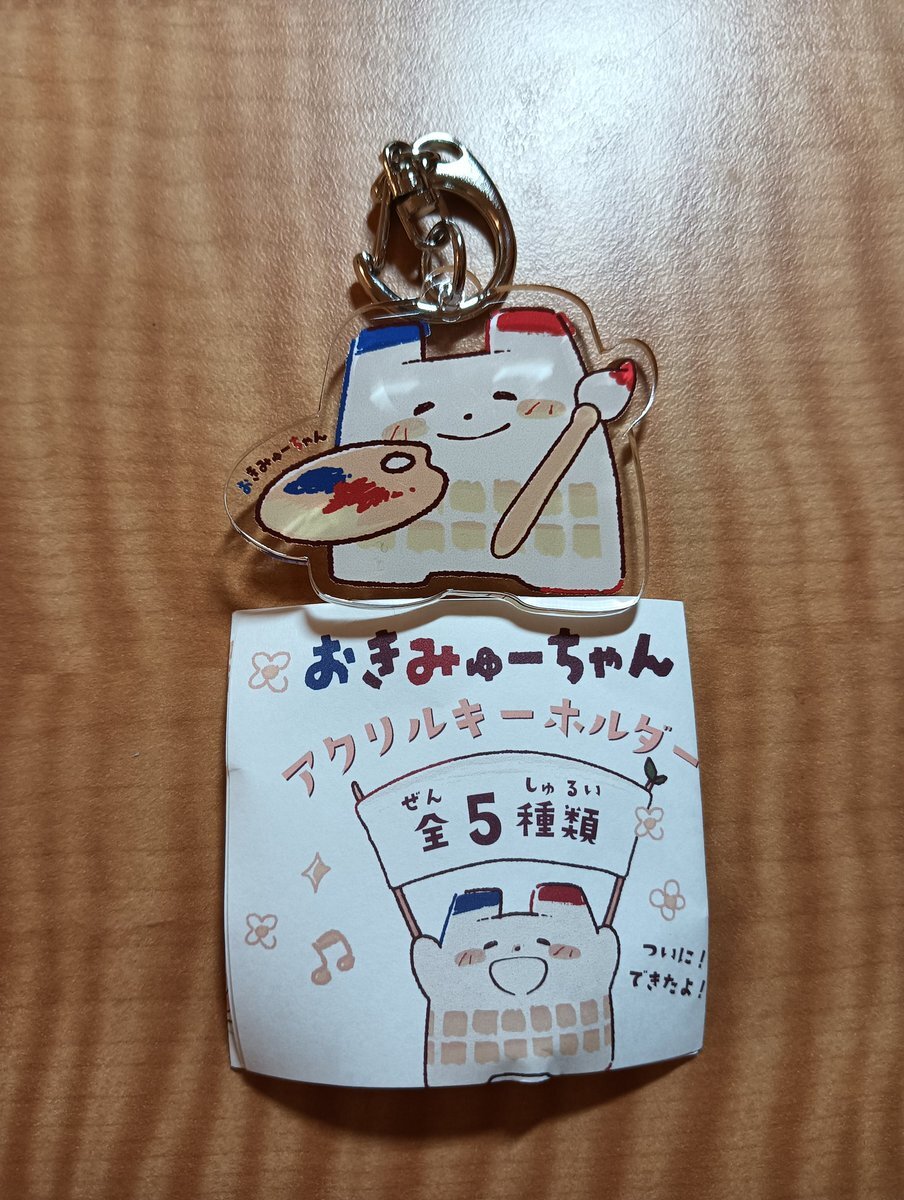 おきみゅーちゃん
おきみゅーちゃん
アクリルキーホルダー
ぜん しゅるい
全5種類
ついに!
できたよ!